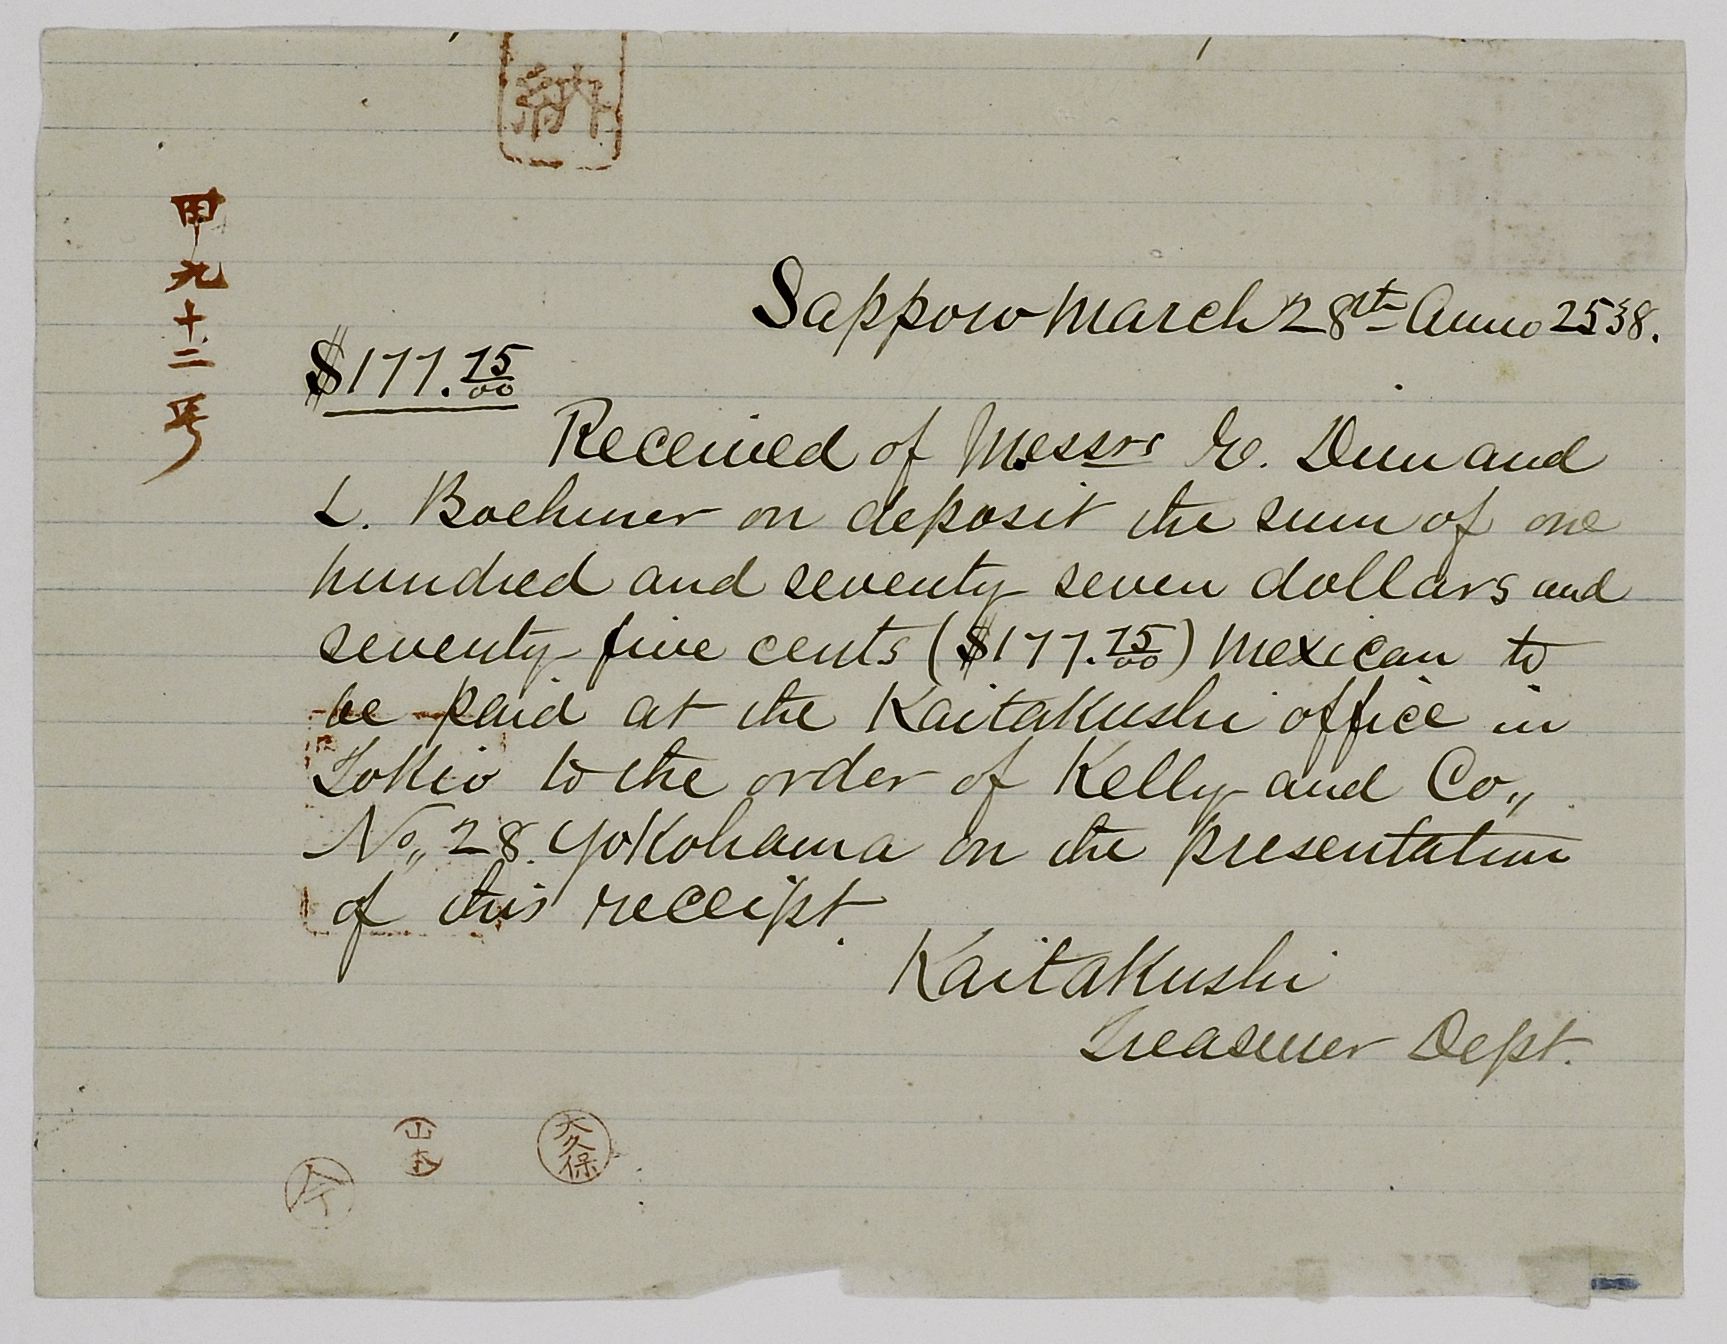 納
甲九十二号
Sapporo March 28th Anno 2538.
$177.75/00
Received of Messrs E. Dun and
L. Boehmer on deposit the sum of one
hundred and seventy seven dollars and
seventy five cents ($177.75/00) Mexican to
be paid at the Kaitakushi office in
Tokio to the order of Kelly and Co,,
No,, 28. Yokohama on the presentation
of this receipt.
Kaitakushi
Treasurer Dept.
大久保
山本
今